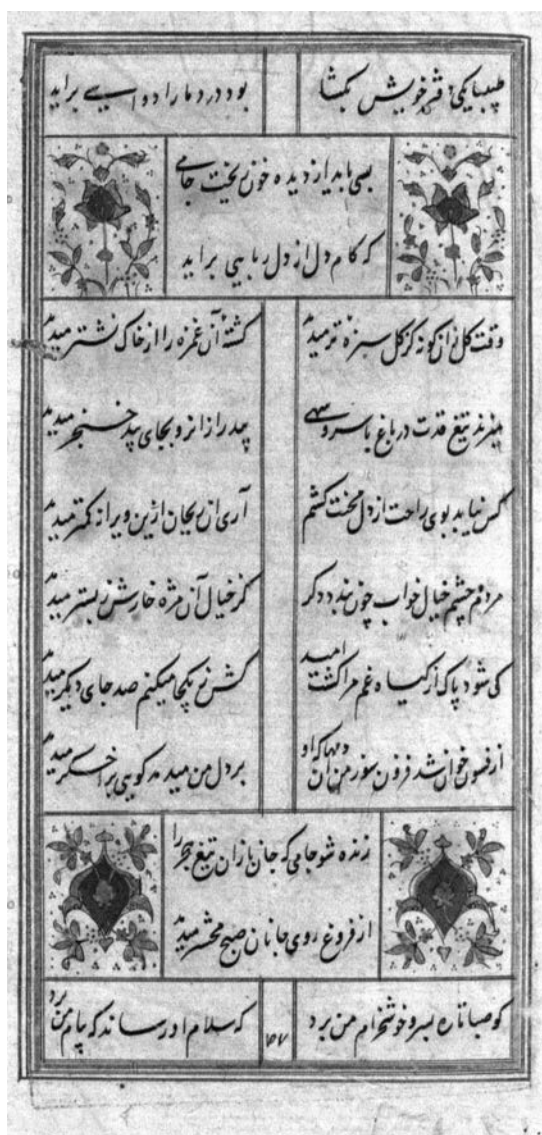 طبیبا یکی خویش بگشا بود درد ما را دوایی برآید
بسی باید از دیده خون ریخت جامی
که کام دل از دل ربایی برآید
وقت گل زان گونه کز گل سبزه تر میدمد کشته آن غمزه را از خاک نشتر میدمد
میزند تیغ قدت در باغ با سرو سهی بید را از انرو بجای بید خنجر میدمد
کس نیابد بوی راحت از دل محنت کشم آری این ریحان ازین ویرانه کمتر میدمد
مردم چشم خیال خواب چون بندد دگر کز خیال آن مژه خارش ز بستر میدمد
کی شود پاک از گیاه غم مرا کشت امید کش ز یکجا میکنم صد جای دیگر میدمد
از فسون خوان شد فزون سوز من آن دمها که او بر دل من میدمد گویی بر اخگر میدمد
زنده شو جامی که جان بازان تیغ هجر را
از فروغ روی جانان صبح محشر میدمد
کو صبا تا ره بسرو خوشخرام من برد که سلام او رساند که پیام من برد